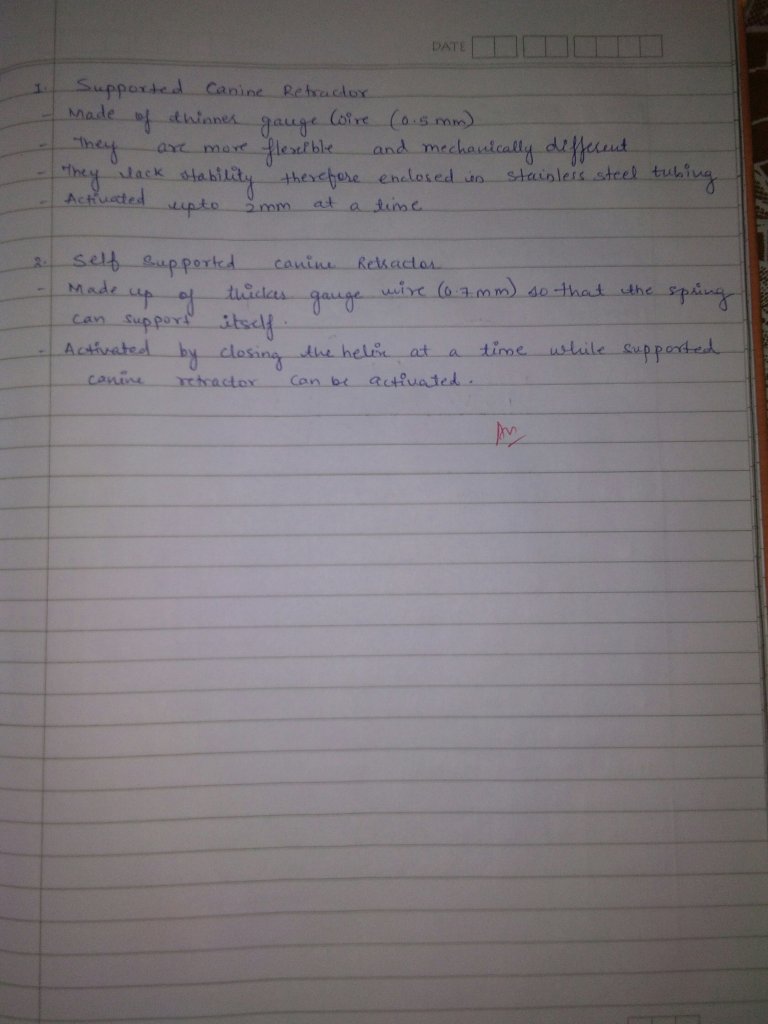 DATE
1. Supported Canine Retractor
- Made of thinner gauge wire (0.5mm)
- They are more flexible and mechanically different
- They lack stability therefore enclosed in stainless steel tubing
- Activated upto 2mm at a time
2. Self Supported canine Retractor
- Made up of thicker gauge wire (0.7mm) so that the spring
can support itself.
- Activated by closing the helix at a time while supported
canine retractor can be activated.